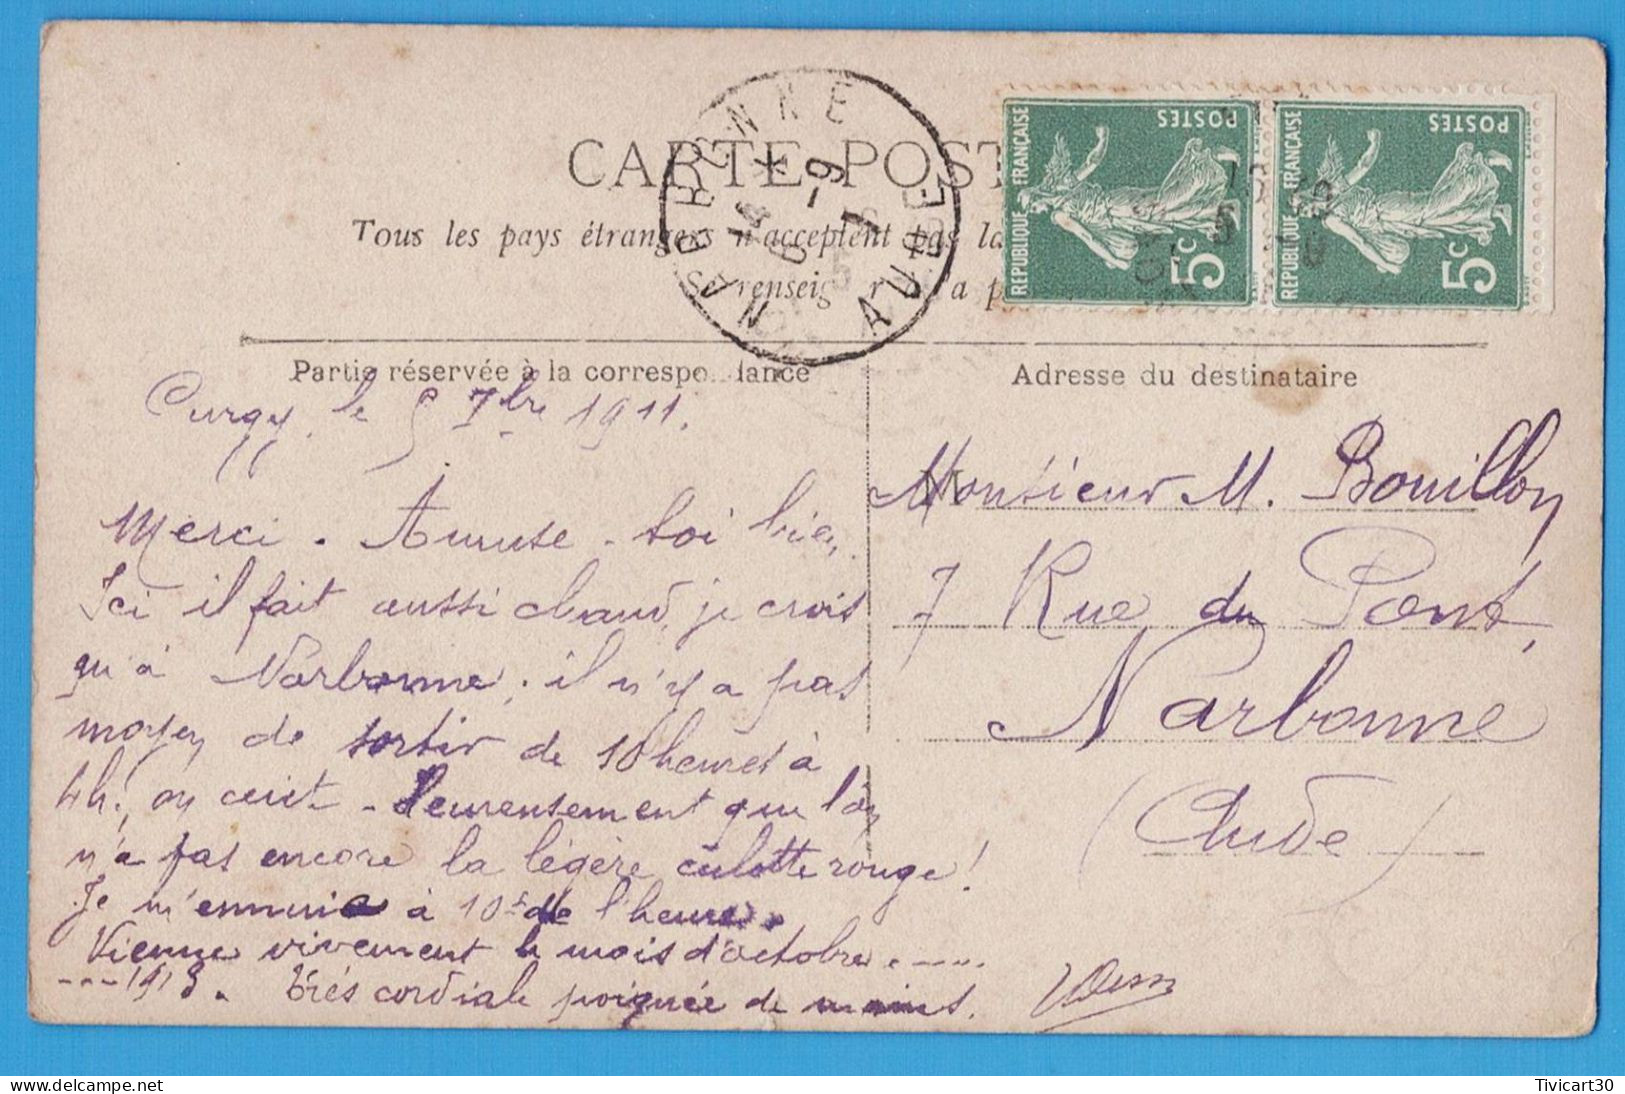 CARTE POST
Tous les pays étrangers n'acceptent pas la
Se renseigner à la p
NARBONNE
AUDE
RÉPUBLIQUE FRANÇAISE
POSTES
5c
RÉPUBLIQUE FRANÇAISE
POSTES
5c
Partie réservée à la correspondance
Curgy, le 5 7bre 1911.
Merci. Amuse-toi bien.
Ici il fait aussi chaud, je crois
qu'à Narbonne; il n'y a pas
moyen de sortir de 10 heures à
4h!, on cuit. Heureusement que l'on
n'a pas encore la légère culotte rouge!
Je m'ennuie à 10f de l'heure.
Vienne vivement le mois d'octobre.....
---1913. Très cordiale poignée de mains.
Adresse du destinataire
M
Monsieur M. Bouillon
7 Rue du Pont,
Narbonne
(Aude)
Tivicart30